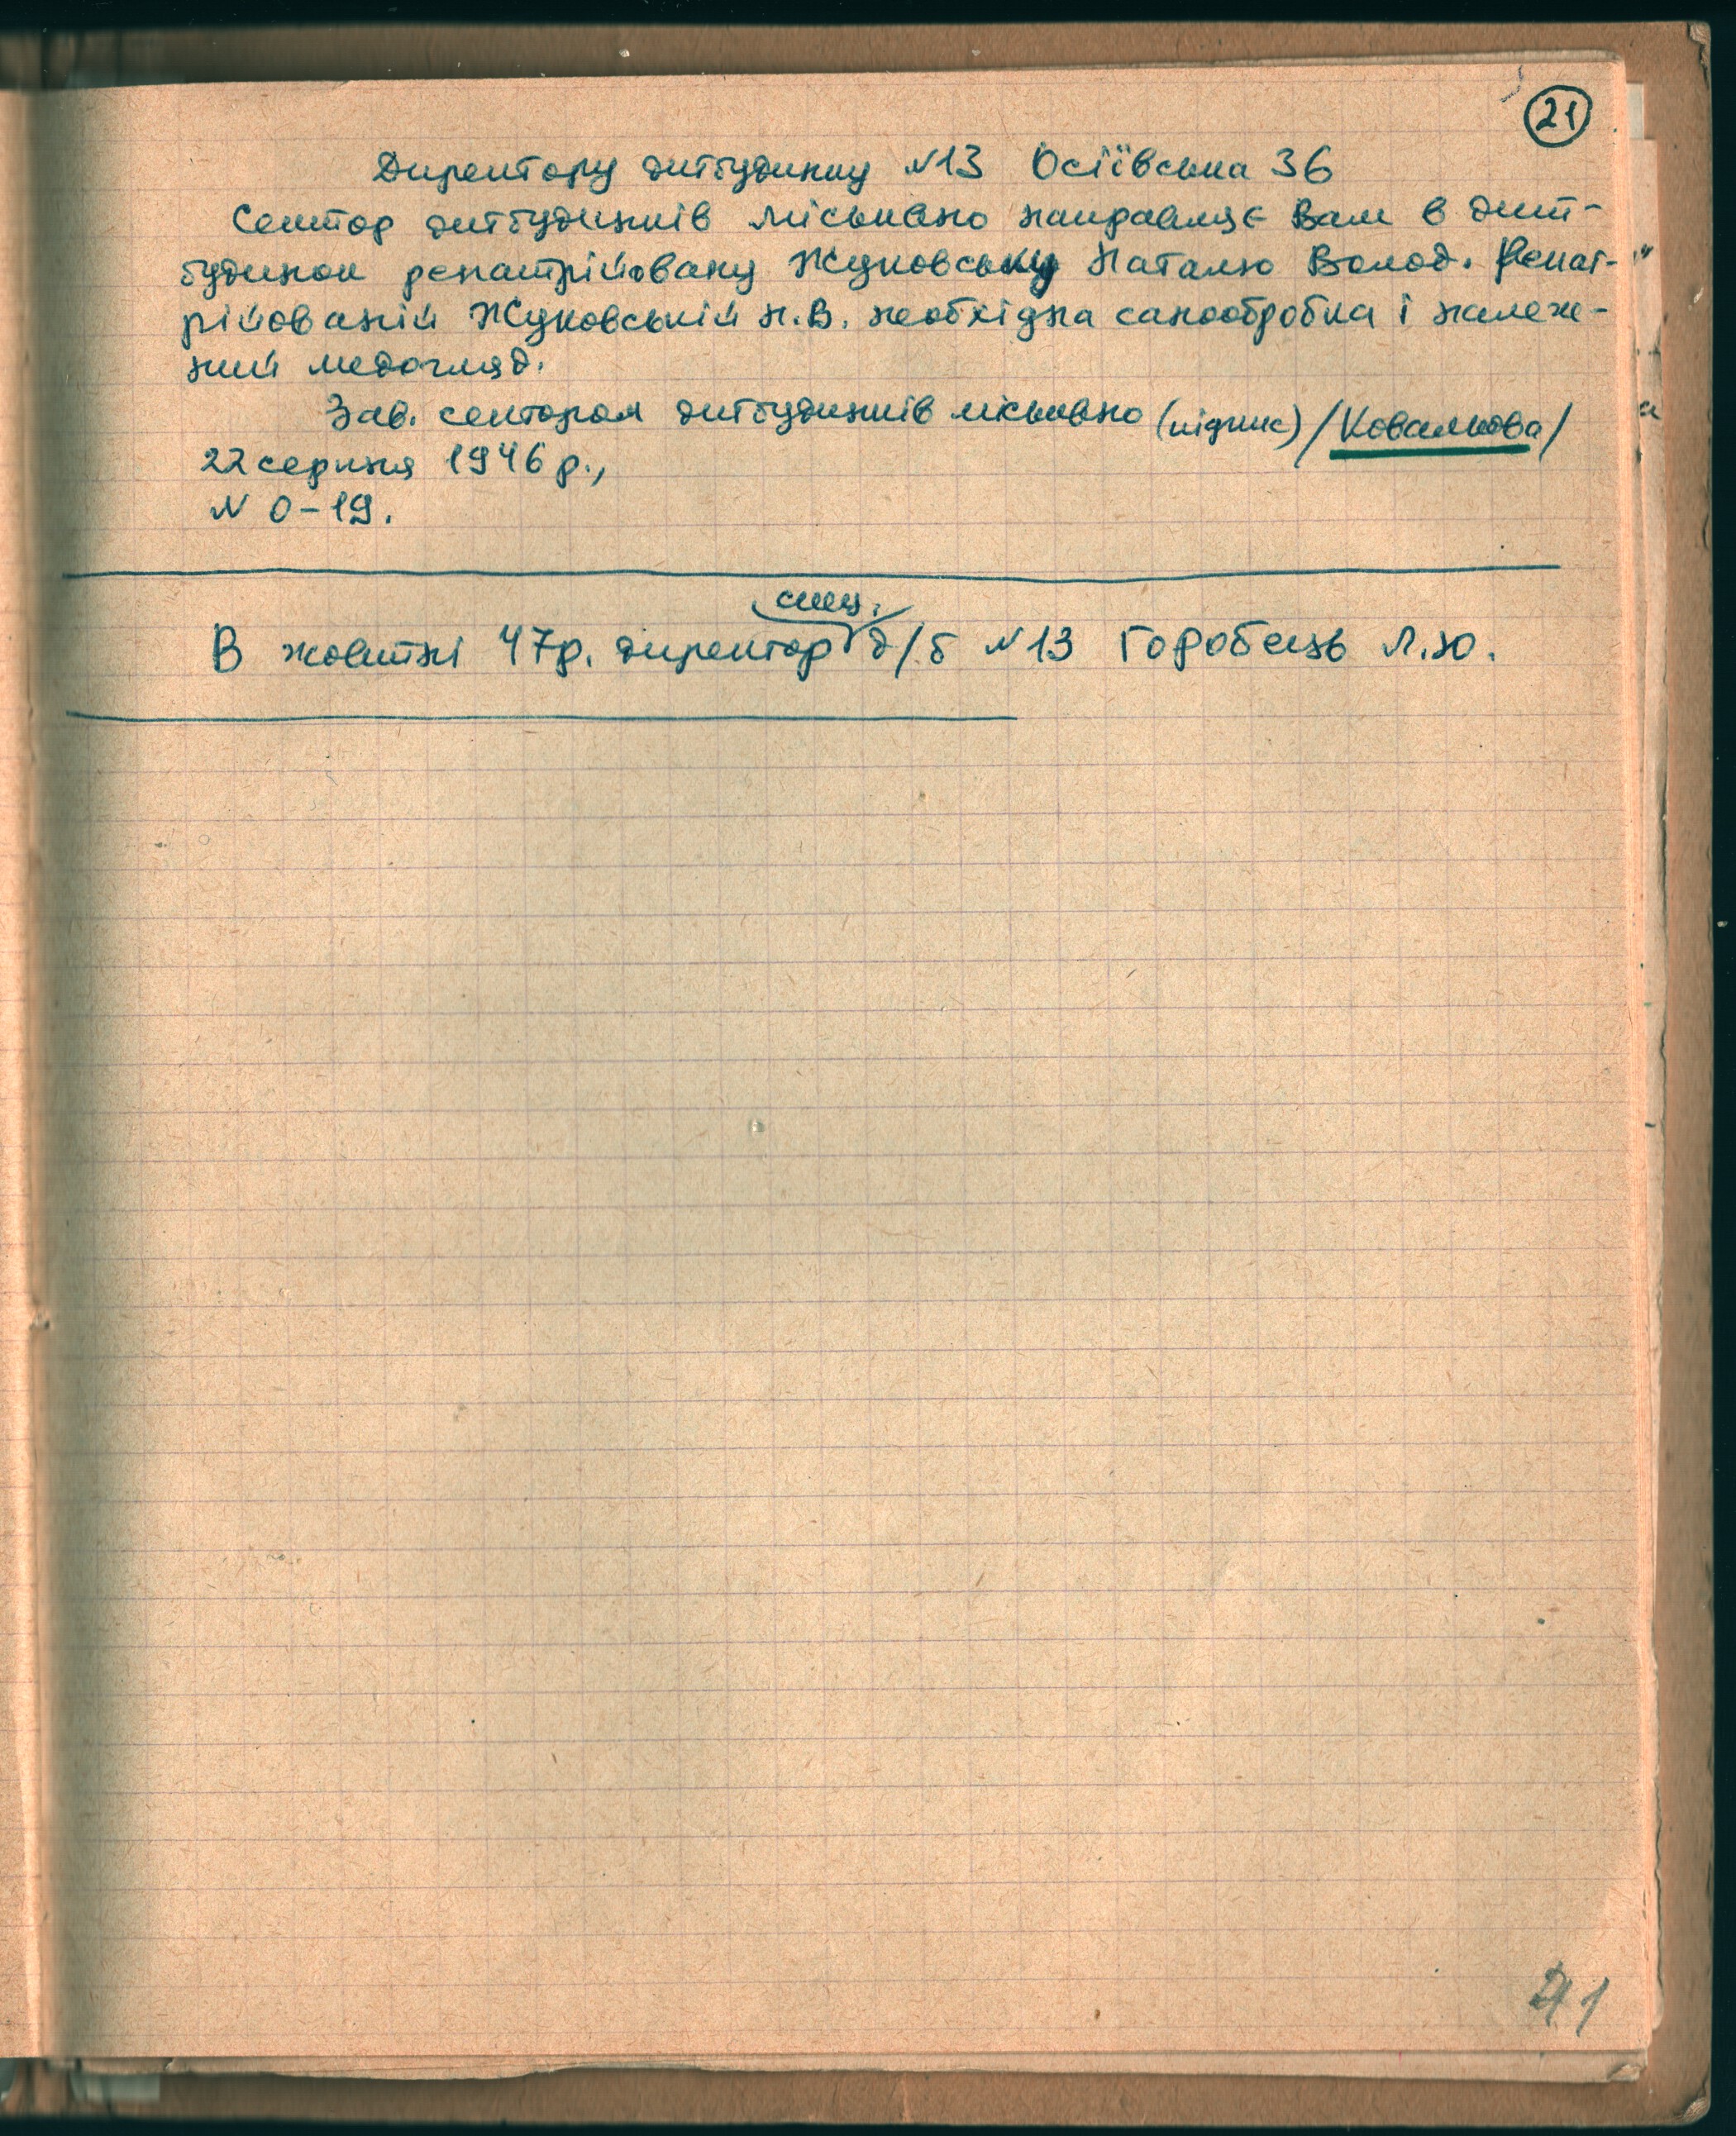 21
Директору дитбудинку №13 Осіївська 36
Сектор дитбудинків міськвно направляє Вам в дит-
будинок репатрійовану Жуковську Наталю Волод. Репат-
рійованій Жуковській Н.В. необхідна санобробка і належ-
ний медогляд.
Зав. сектором дитбудинків міськвно (підпис) /Ковалькова/
22 серпня 1946 р.,
№ 0-19.
спец.
В жовтні 47р. директор д/б №13 Горобець Л.Ю.